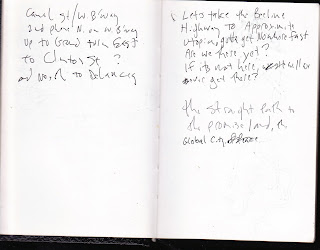 Canal st/W. B'way
2nd place N. on W. B'way
up to Grand turn East
to Clinton St ?
and North to Delancey
Lets take the Beeline
Highway To Approximate
utopia, gotta get Nowhere fast
Are we there yet?
If its not here, 
get there?
the straight path to
the promise land, the
Global City of Peace